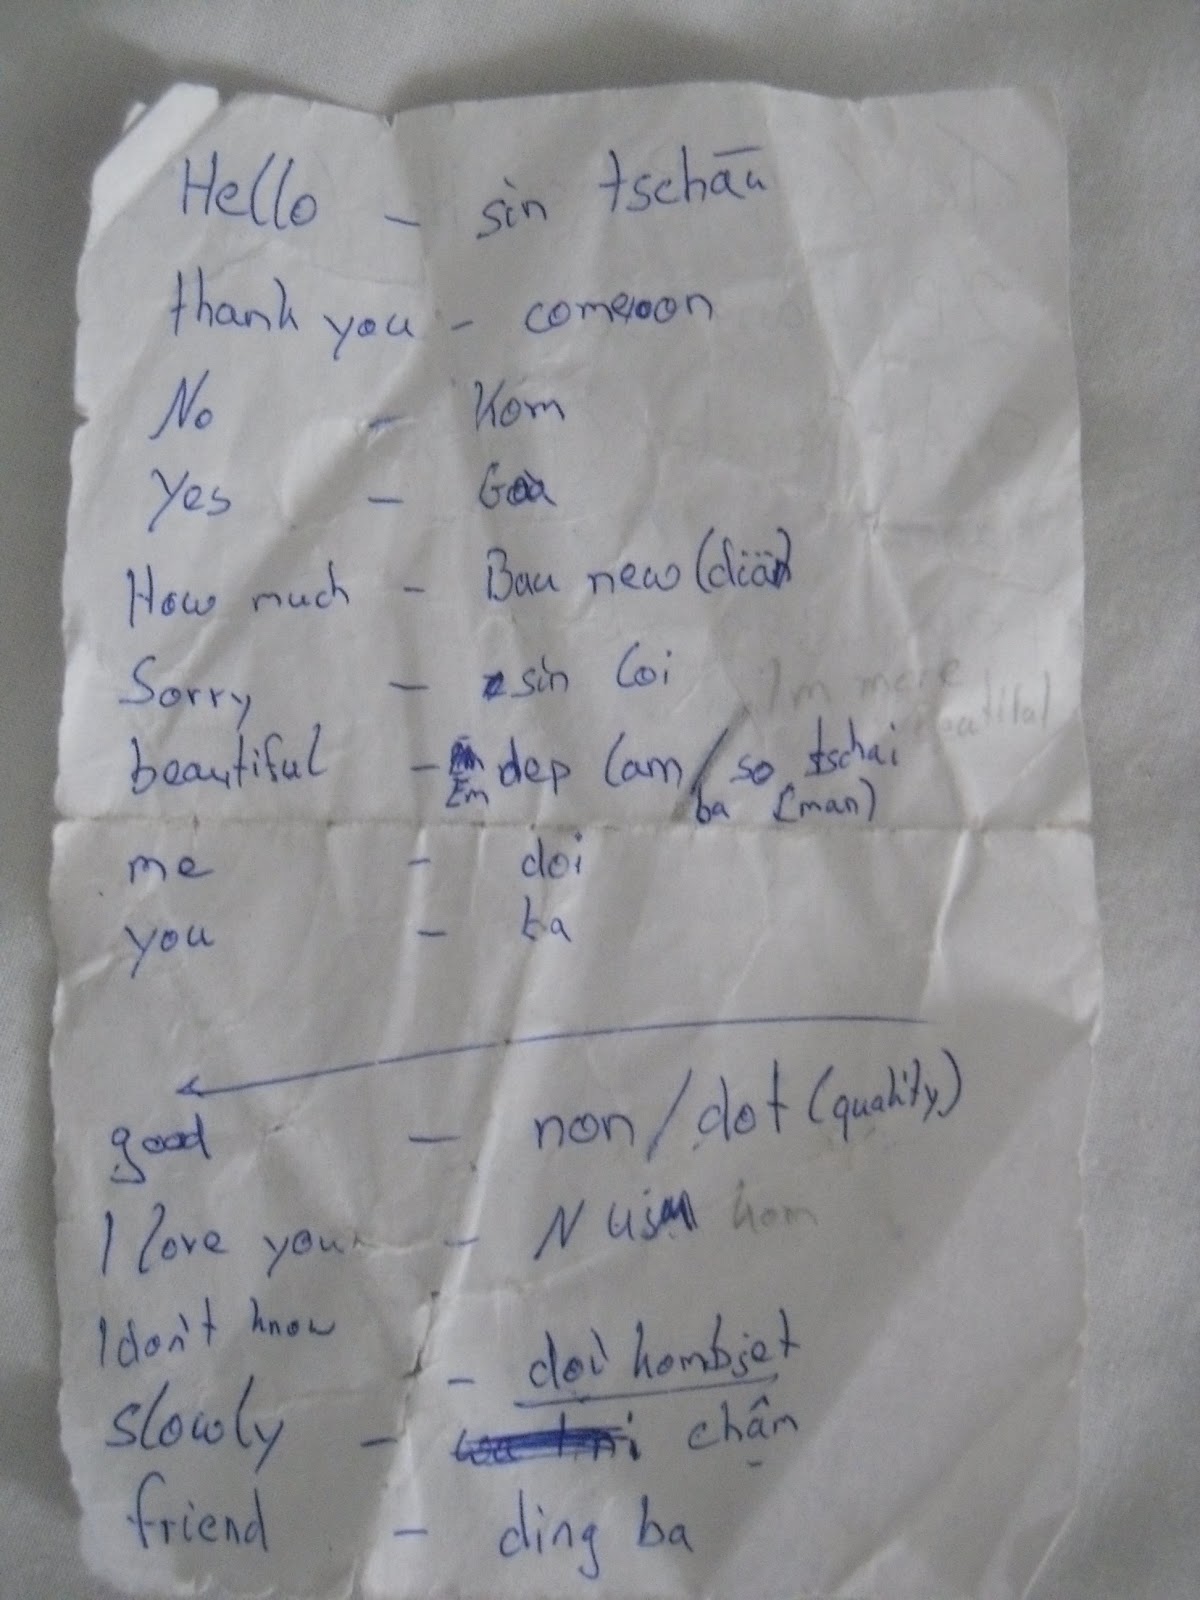 Hello - sin tschāu
thank you - comeoon
No - Kom
Yes - Goa
How much - Bau new (diään)
Sorry - sin loi
I'm more
beautiful
beautiful - Em dep lam / so tschai
ba (man)
me - doi
you - ba
good - non / dot (quality)
I love you - kom
I don't know
- doi kombjet
slowly - chậm
friend - ding ba